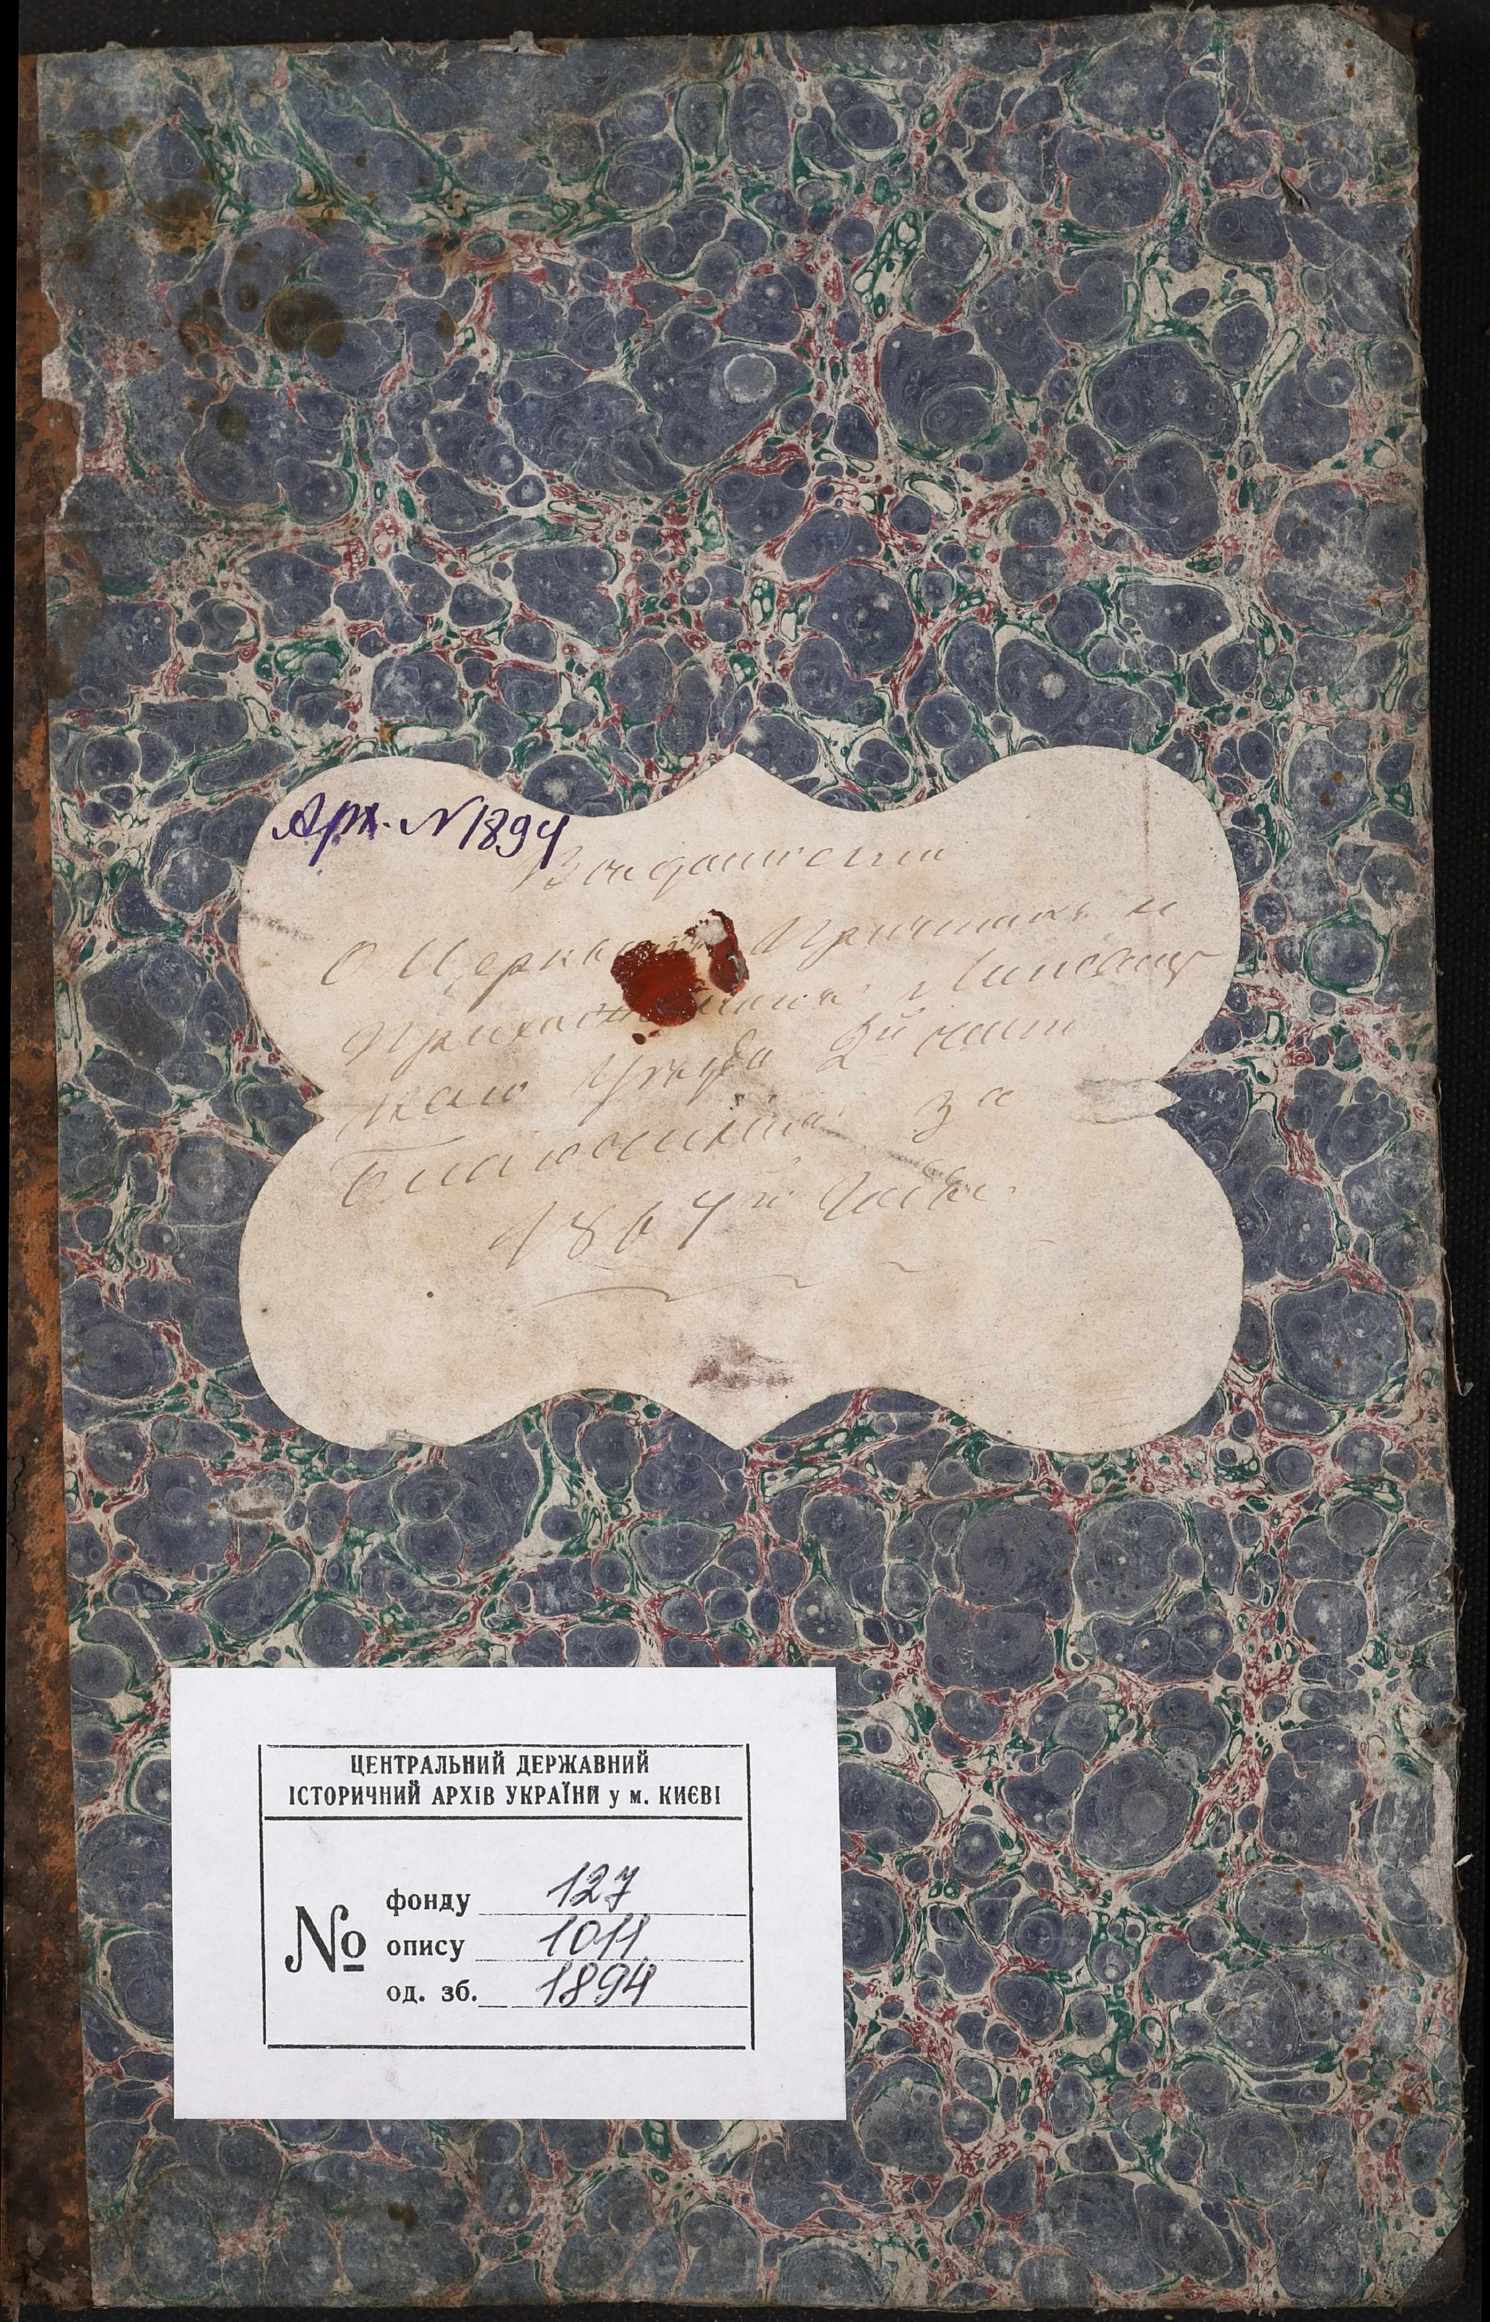 Арх. № 1894
Вѣдомости
О Церквахъ Причтахъ и
Прихожанахъ Липовец
каго Уѣзда 2й части
Благочинія за
1864й годъ.
ЦЕНТРАЛЬНИЙ ДЕРЖАВНИЙ
ІСТОРИЧНИЙ АРХІВ УКРАЇНИ у м. КИЄВІ
№
фонду 127
опису 1011
од. зб. 1894